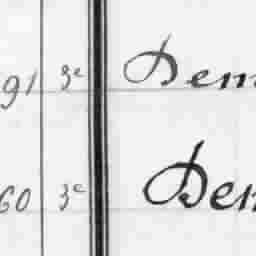 91 3e Dem
60 3e Den